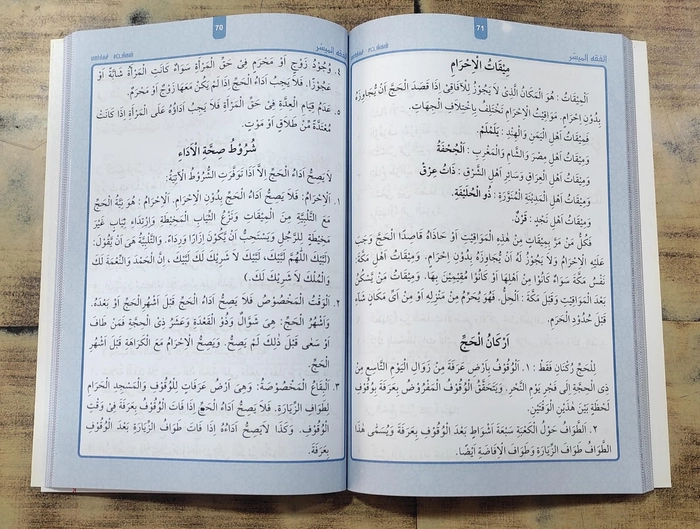 70
الفقه الميسر
٤. وُجُودُ زَوْجٍ اَوْ مَحْرَمٍ فِىْ حَقِّ الْمَرْأَةِ سَوَاءٌ كَانَتِ الْمَرْأَةُ شَابَّةً اَوْ
عَجُوْزًا. فَلَا يَجِبُ اَدَاءُ الْحَجِّ اِذَا لَمْ يَكُنْ مَعَهَا زَوْجٌ اَوْ مَحْرَمٌ.
٥. عَدَمُ قِيَامِ الْعِدَّةِ فِىْ حَقِّ الْمَرْأَةِ فَلَا يَجِبُ اَدَاؤُهُ عَلَى الْمَرْأَةِ اِذَا كَانَتْ
مُعْتَدَّةً مِّنْ طَلَاقٍ اَوْ مَوْتٍ.
شُرُوْطُ صِحَّةِ الْاَدَاءِ
لَا يَصِحُّ اَدَاءُ الْحَجِّ اِلَّا اِذَا تَوَفَّرَتِ الشُّرُوْطُ الْآتِيَةُ:
١. اَلْاِحْرَامُ: فَلَا يَصِحُّ اَدَاءُ الْحَجِّ بِدُوْنِ الْاِحْرَامِ. اَلْاِحْرَامُ : هُوَ نِيَّةُ الْحَجِّ
مَعَ التَّلْبِيَةِ مِنَ الْمِيْقَاتِ وَنَزْعُ الثِّيَابِ الْمَخِيْطَةِ وَارْتِدَاءِ ثِيَابٍ غَيْرِ
مَخِيْطَةٍ لِلرَّجُلِ وَيَسْتَحِبُّ اَنْ يَّكُوْنَ اِزَارًا وَرِدَاءً. وَالتَّلْبِيَةُ هِىَ اَنْ يَّقُوْلَ:
(لَبَّيْكَ اللّٰهُمَّ لَبَّيْكَ، لَبَّيْكَ لَا شَرِيْكَ لَكَ لَبَّيْكَ ، اِنَّ الْحَمْدَ وَالنِّعْمَةَ لَكَ
وَالْمُلْكَ لَا شَرِيْكَ لَكَ.)
٢. اَلْوَقْتُ الْمَخْصُوْصُ فَلَا يَصِحُّ اَدَاءُ الْحَجِّ قَبْلَ اَشْهُرِ الْحَجِّ اَوْ بَعْدَهُ.
وَاَشْهُرُ الْحَجِّ: هِىَ شَوَّالٌ وَذُو الْقَعْدَةِ وَعَشْرُ ذِى الْحِجَّةِ فَمَنْ طَافَ
اَوْ سَعٰى قَبْلَ ذٰلِكَ لَمْ يَصِحَّ. وَيَصِحُّ الْاِحْرَامُ مَعَ الْكَرَاهَةِ قَبْلَ اَشْهُرِ
الْحَجِّ.
٣. اَلْبِقَاعُ الْمَخْصُوْصَةُ: وَهِىَ اَرْضُ عَرَفَاتٍ لِلْوُقُوْفِ وَالْمَسْجِدِ الْحَرَامِ
لِطَوَافِ الزِّيَارَةِ. فَلَا يَصِحُّ اَدَاءُ الْحَجِّ اِذَا فَاتَ الْوُقُوْفُ بِعَرَفَةَ فِىْ وَقْتِ
الْوُقُوْفِ. وَكَذَا لَايَصِحُّ اَدَاؤُهُ اِذَا فَاتَ طَوَافُ الزِّيَارَةِ بَعْدَ الْوُقُوْفِ
بِعَرَفَةَ.
71
الفقه الميسر
مِيْقَاتُ الْاِحْرَامِ
اَلْمِيْقَاتُ : هُوَ الْمَكَانُ الَّذِىْ لَا يَجُوْزُ لِلْآفَاقِىْ اِذَا قَصَدَ الْحَجَّ اَنْ يُّجَاوِزَهُ
بِدُوْنِ اِحْرَامٍ. مَوَاقِيْتُ الْاِحْرَامِ تَخْتَلِفُ بِاخْتِلَافِ الْجِهَاتِ.
فَمِيْقَاتُ اَهْلِ الْيَمَنِ وَالْهِنْدِ : يَلَمْلَمُ.
وَمِيْقَاتُ اَهْلِ مِصْرَ وَالشَّامِ وَالْمَغْرِبِ : اَلْجُحْفَةُ
وَمِيْقَاتُ اَهْلِ الْعِرَاقِ وَسَائِرِ اَهْلِ الشَّرْقِ : ذَاتُ عِرْقٍ
وَمِيْقَاتُ اَهْلِ الْمَدِيْنَةِ الْمُنَوَّرَةِ : ذُو الْحُلَيْفَةِ.
وَمِيْقَاتُ اَهْلِ نَجْدٍ : قَرْنٌ.
فَكُلُّ مَنْ مَرَّ بِمِيْقَاتٍ مِنْ هٰذِهِ الْمَوَاقِيْتِ اَوْ حَاذَاهُ قَاصِدًا الْحَجَّ وَجَبَ
عَلَيْهِ الْاِحْرَامُ وَلَا يَجُوْزُ لَهُ اَنْ يُّجَاوِزَهُ بِدُوْنِ اِحْرَامٍ. وَمِيْقَاتُ اَهْلِ مَكَّةَ:
نَفْسُ مَكَّةَ سَوَاءٌ كَانُوْا مِنْ اَهْلِهَا اَوْ كَانُوْا مُقِيْمِيْنَ بِهَا. وَمِيْقَاتُ مَنْ يَّسْكُنُ
بَعْدَ الْمَوَاقِيْتِ وَقَبْلَ مَكَّةَ : اَلْحِلُّ. فَهُوَ يُحْرِمُ مِنْ مَنْزِلِهِ اَوْ مِنْ اَىِّ مَكَانٍ شَاءَ
قَبْلَ حُدُوْدِ الْحَرَمِ.
اَرْكَانُ الْحَجِّ
لِلْحَجِّ رُكْنَانِ فَقَطْ : ١. اَلْوُقُوْفُ بِاَرْضِ عَرَفَةَ مِنْ زَوَالِ الْيَوْمِ التَّاسِعِ مِنْ
ذِى الْحِجَّةِ اِلٰى فَجْرِ يَوْمِ النَّحْرِ. وَيَتَحَقَّقُ الْوُقُوْفُ الْمَفْرُوْضُ بِعَرَفَةَ بِوُقُوْفِ
لَحْظَةٍ بَيْنَ هٰذَيْنِ الْوَقْتَيْنِ.
٢. اَلطَّوَافُ حَوْلَ الْكَعْبَةِ سَبْعَةَ اَشْوَاطٍ بَعْدَ الْوُقُوْفِ بِعَرَفَةَ وَيُسَمّٰى هٰذَا
الطَّوَافُ طَوَافَ الزِّيَارَةِ وَطَوَافَ الْاِفَاضَةِ اَيْضًا.